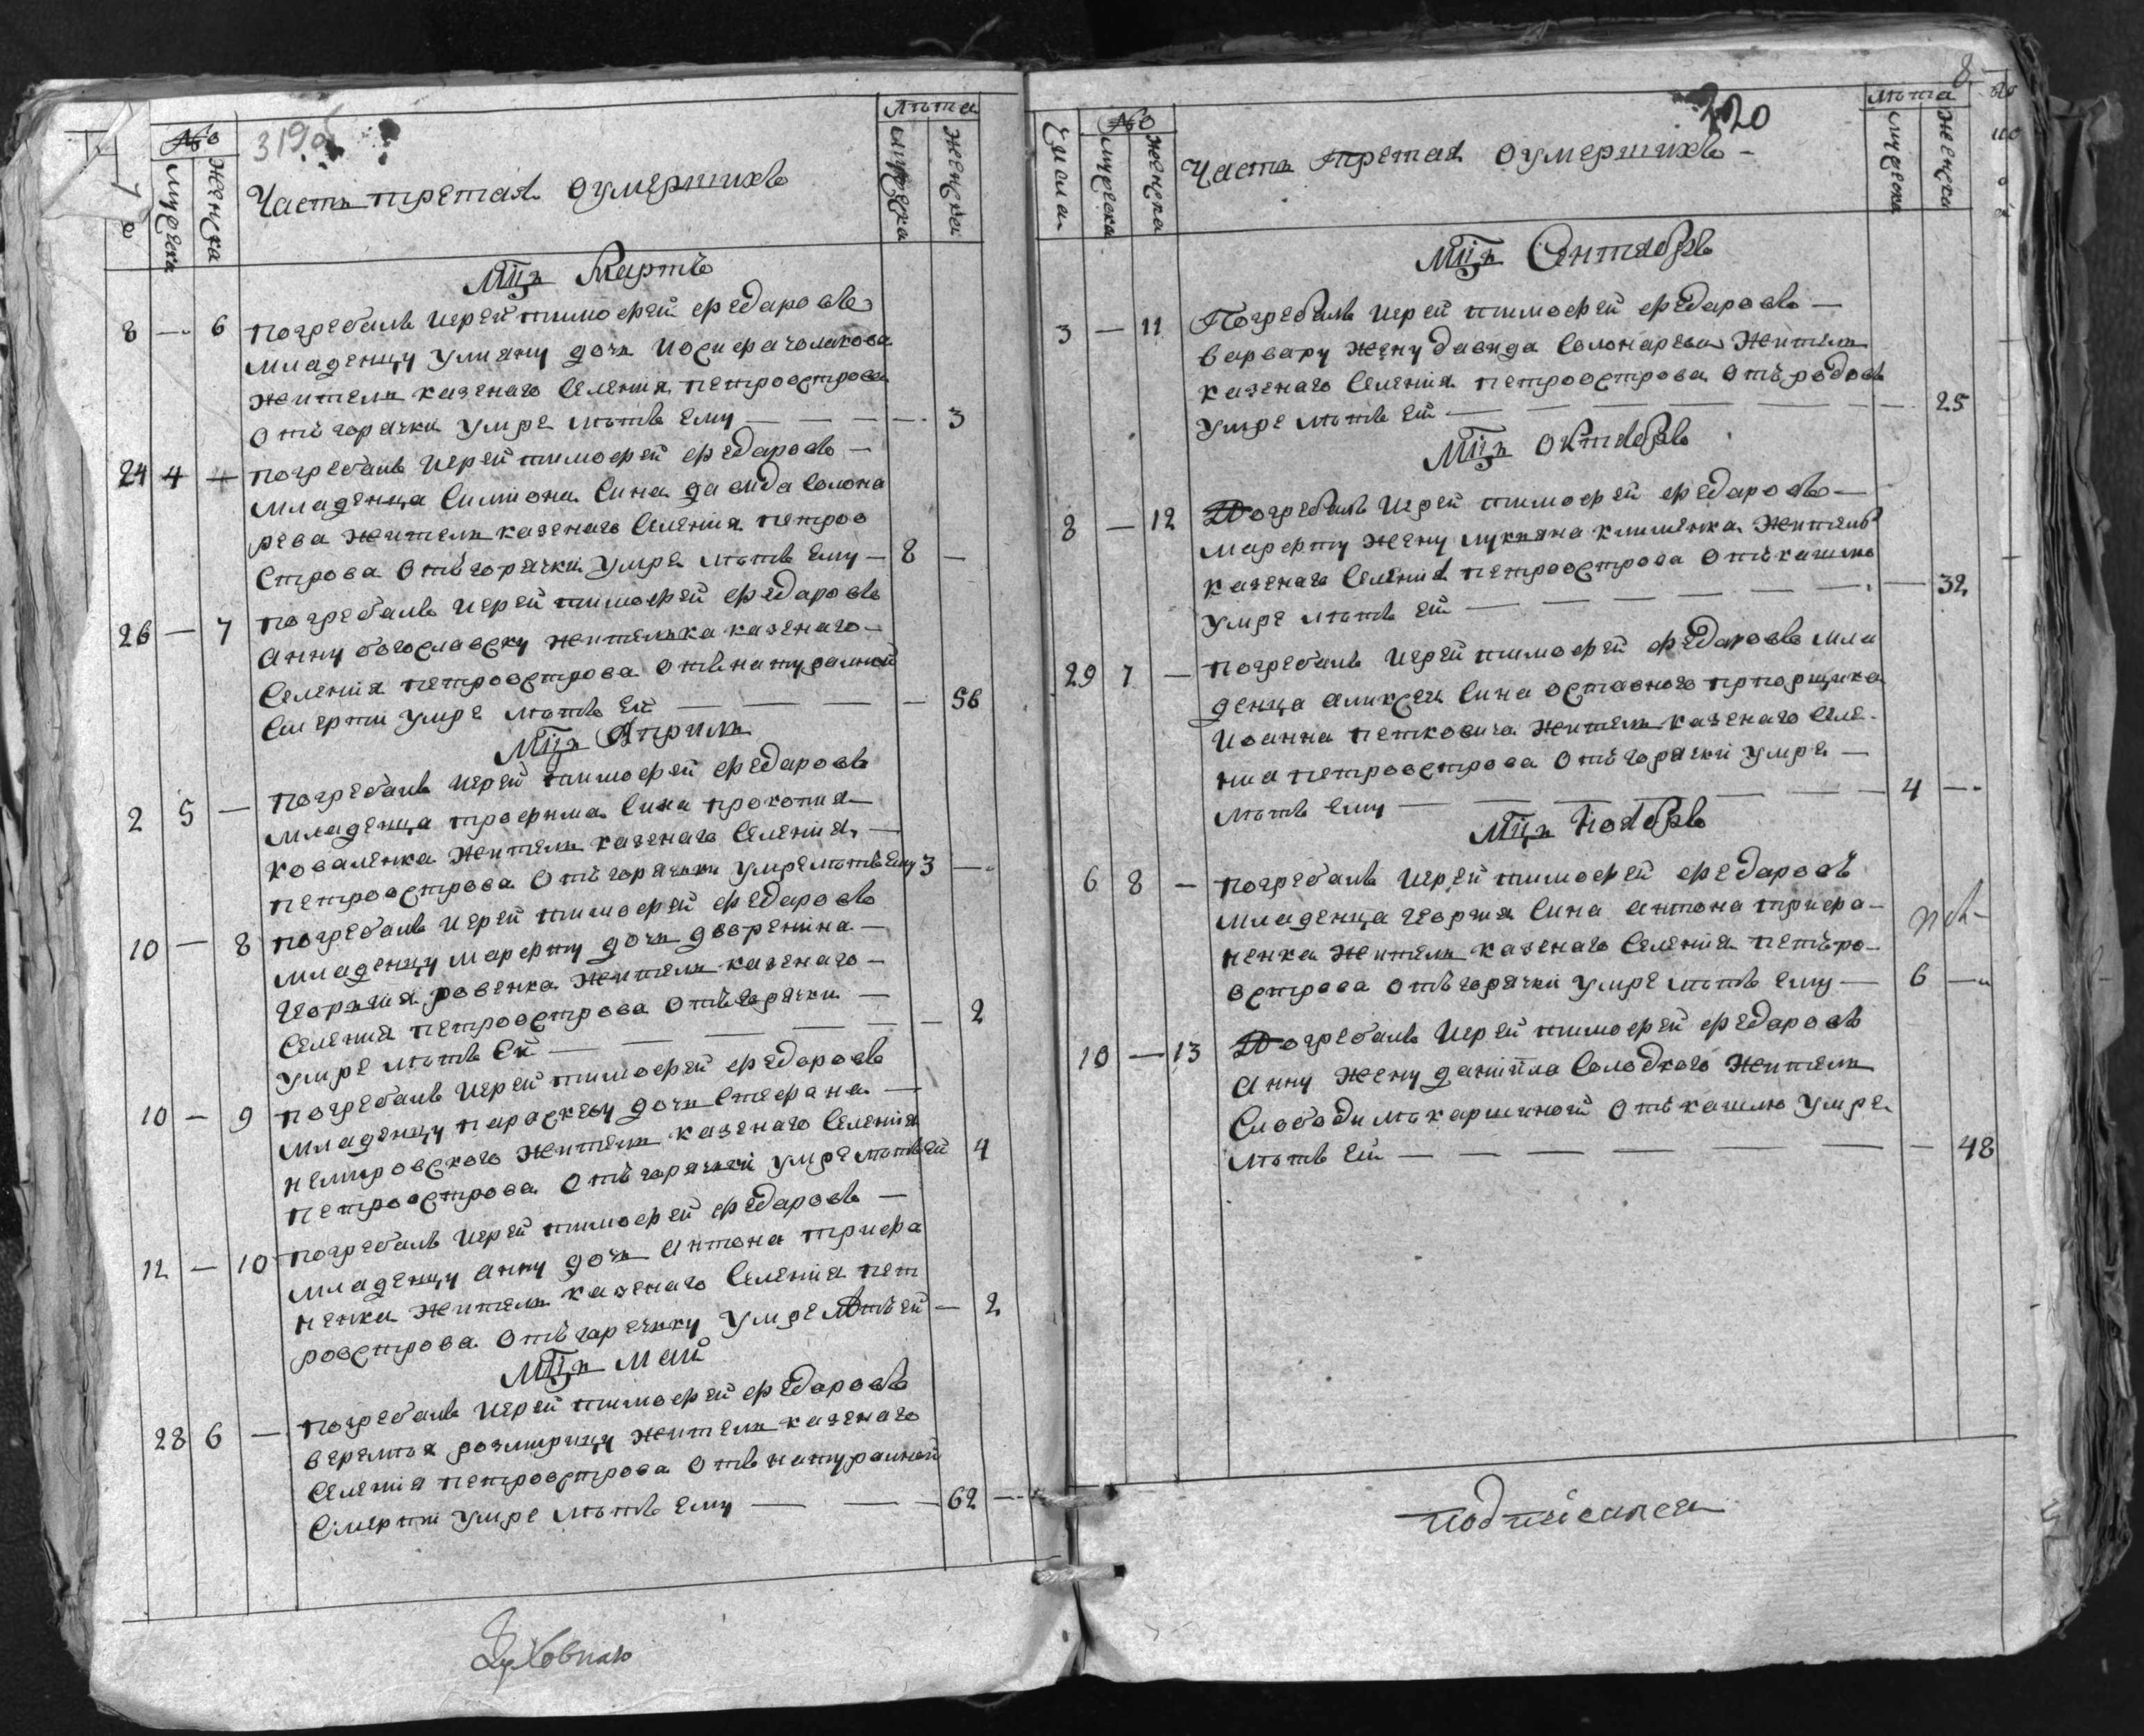 319об
№
Лѣта
мужеска
женска
мужеска
женска
Часть третая о умершихъ
Мцъ Мартъ
8 — 6 погребалъ Иерей тимофей федаровъ
младенцу Улияну дочъ Иосифа чолакова
жителя казенаго Селения петроострова
отъ горячки умре лѣтъ ему — — — 3
24 4 — погребалъ Иерей тимофей федаровъ —
младенца Симиона Сина давида Солона
рева жителя казенаго Селения петроо
строва отъ горячки умре лѣтъ ему — 8 —
26 — 7 погребалъ Иерей тимофей федаровъ
анну богославску жителька казенаго —
Селения петроострова отъ натуралной
Смерти умре лѣтъ ей — — — — 56
Мцъ Априль
2 5 — погребалъ Иерей тимофей федаровъ
младенца трофима Сина прокопия —
коваленка жителя казенаго Селения —
петроострова отъ горячки умре лѣтъ ему 3 —
10 — 8 погребалъ Иерей тимофей федаровъ
младенцу марефту дочъ дворенина —
Георгия ровенка жителя казенаго —
Селения петроострова отъ горячки —
умре лѣтъ ей — — — — — 2
10 — 9 погребалъ Иерей тимофей федаровъ
младенцу параскеву дочъ Стефана —
немировского жителя казенаго Селения
петроострова отъ горячки умре лѣтъ ей 4
12 — 10 погребалъ Иерей тимофей федаровъ —
младенцу анну дочъ антона трифа
ненка жителя казенаго Селения пет
роострова отъ гаречку умре лѣтъ ей — 2
Мцъ маи
28 6 — погребалъ Иерей тимофей федаровъ
веремѣя розмирицу жителя казенаго
Селения петроострова отъ натуралной
Смерти умре лѣтъ ему — — — 62 —
Духовнаго
8
320
№
Лѣта
Числа
мужеска
женска
мужеска
женска
Часть третая о умершихъ —
Мцъ Сентябръ
3 — 11 Погребалъ Иерей тимофей федаровъ —
варвару жену давида Солонарева жителя
казенаго Селения петроострова отъ родовъ
умре лѣтъ ей — — — — — — 25
Мцъ октябръ
8 — 12 Погребалъ Иерей тимофей федаровъ —
марефту жену лукияна клименка жителя
казенаго Селения петроострова отъ кашлю
умре лѣтъ ей — — — — — — — 32
29 7 — погребалъ Иерей тимофей федаровъ мла
денца аликсея Сина оставного прпорщика
Иоанна петковича жителя казенаго Селе-
ния петроострова отъ горячки умре —
лѣтъ ему — — — — — — 4 —
Мцъ Ноябръ
6 8 — погребалъ Иерей тимофей федаровъ
младенца георгия Сина антона трифа-
ненка жителя казенаго Селения петъро-
острова отъ горячки умре лѣтъ ему — 6 —
10 — 13 Погребалъ Иерей тимофей федаровъ
анну жену даниила Солодкого жителя
Слободи мъкаршиной отъ кашлю умре
лѣтъ ей — — — — — — — 48
подписался